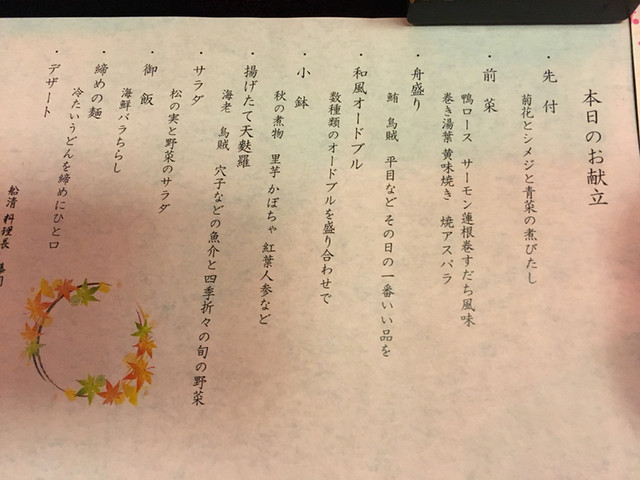 本日のお献立
・先付
菊花とシメジと青菜の煮びたし
・前菜
鴨ロース サーモン蓮根巻すだち風味
巻き湯葉 黄味焼き 焼アスパラ
・舟盛り
鮪 烏賊 平目など その日の一番いい品を
・和風オードブル
数種類のオードブルを盛り合わせで
・小鉢
秋の煮物 里芋 かぼちゃ 紅葉人参など
・揚げたて天麩羅
海老 烏賊 穴子などの魚介と四季折々の旬の野菜
・サラダ
松の実と野菜のサラダ
・御飯
海鮮バラちらし
・締めの麺
冷たいうどんを締めにひと口
・デザート
船清 料理長